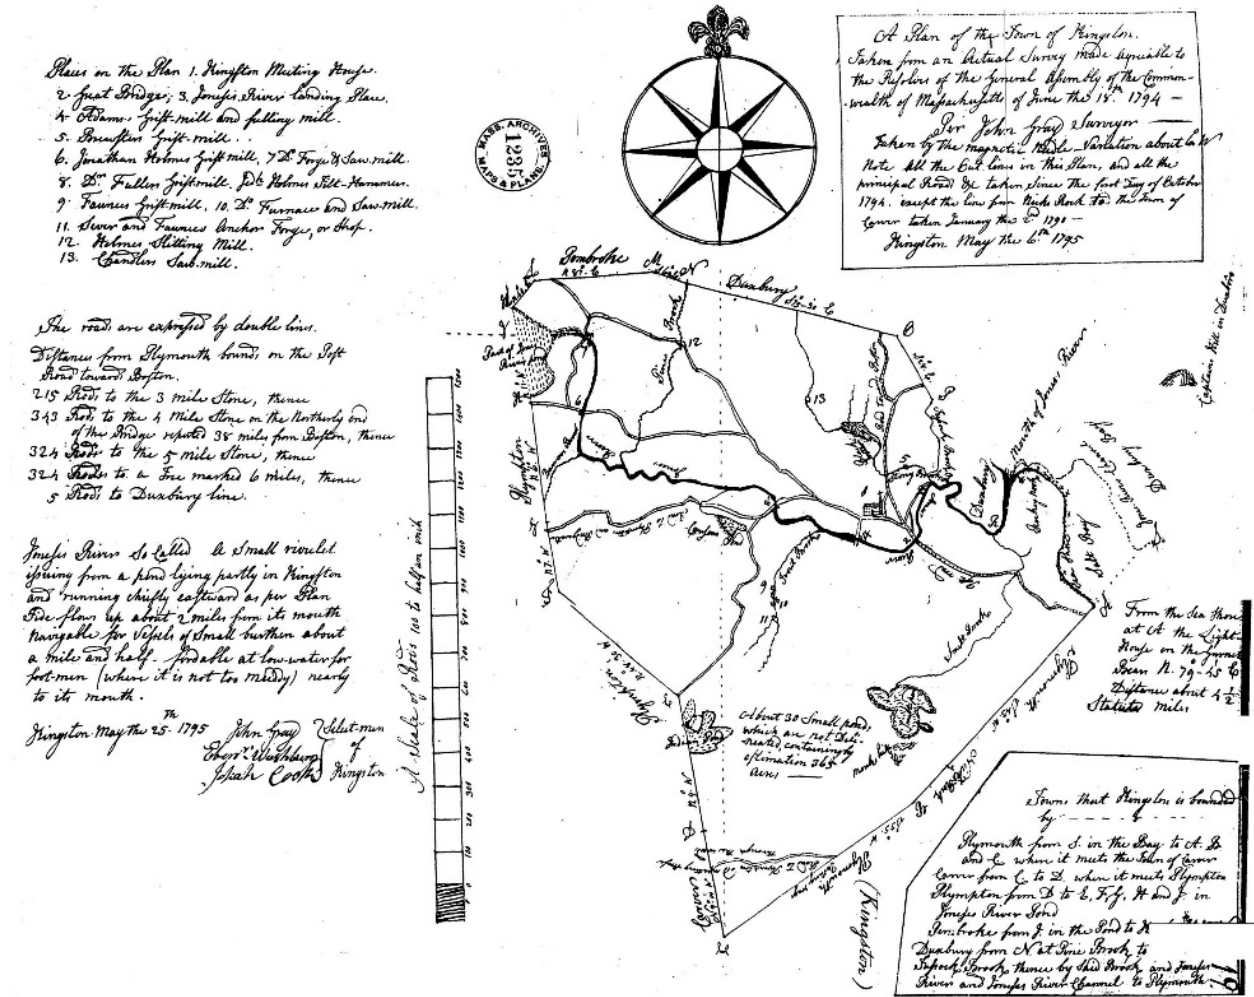 Places on the Plan 1. Kingston Meeting House.
2 Great Bridge; 3. Joneses River landing Place.
4 Adams Grist mill and fulling mill.
5. Brewsters Grist-mill.
6. Jonathan Holmes Grist mill, 7 Do Forge & Saw.mill.
8. Drn Fullers Grist-mill. Jedh Holmes Tilt-Hammer.
9 Faunces Grist-mill, 10. Do Furnace and Saw-mill.
11. Sever and Faunces Anchor Forge, or Shop.
12. Holmes Slitting Mill.
13. Chandlers Saw-mill.
The roads are expressed by double lines.
Distances from Plymouth bounds on the Post
Road towards Boston.
215 Rods to the 3 mile Stone, thence
343 Rods to the 4 Mile Stone on the Northerly end
of the Bridge reputed 38 miles from Boston, thence
324 Rods to the 5 mile Stone, thence
324 Rods to a Tree marked 6 miles, thence
5 Rods to Duxbury line.
Joneses River So Called is Small rivulet
issuing from a pond lying partly in Kingston
and running chiefly eastward as per Plan
Tide flows up about 2 miles from its mouth
navigable for Vessels of Small burthen about
a mile and half. fordable at low-water for
foot-men (where it is not too muddy) nearly
to its mouth.
Kingston May the 25th 1795
John Gray
Ebenr Washburn
Josiah Cook
Select-men
of
Kingston
MASS. ARCHIVES
1235
MAPS & PLANS.
A Plan of the Town of Kingston.
Taken from an Actual Survey made agreeable to
the Resolves of the General Assembly of the Common-
wealth of Massachusetts of June the 18th 1794 —
Per John Gray Surveyor —
Taken by the magnetic Needle - Variation about 6o W
Note All the Out lines in this Plan, and all the
principal Roads &c taken Since the first Day of October
1794. except the line from Nicks Rock to the Town of
Carver taken January the 2d 1790 —
Kingston May the 6th 1795
A Scale of Rods 100 to half an inch
0
100
200
300
400
500
600
700
800
900
1000
1100
1200
1300
1400
1500
Pembroke
M
N
Duxbury
O
Part of Jones
River pond
Pine Brook
12
13
6
Plympton
Jones River
5
Duxbury
mouth of Jones River
Captains Hill in Duxbury
Salt Bay
9
10
11
Trout Brook
Smelt Brook
Plympton
Indian Pond
About 30 Small ponds
which are not Deli-
neated, containing by
estimation 365
Acres —
monks hill
Plymouth
Carver
(Kingston)
From the Sea Shore
at A the Light-
House on the Gurnet
Bears N. 79-45 E
Distance about 4 1/2
Statute miles
Towns that Kingston is bounded
by
Plymouth from S. in the Bay to A. B
and C when it meets the Town of Carver
Carver from C. to D. when it meets Plympton
Plympton from D to E, F, G, H and J. in
Joneses River Pond
Pembroke from J. in the Pond to
Duxbury from N. at Pine Brook to
Brook thence by Said Brook and Joneses
River and Joneses River Channel to Plymouth.